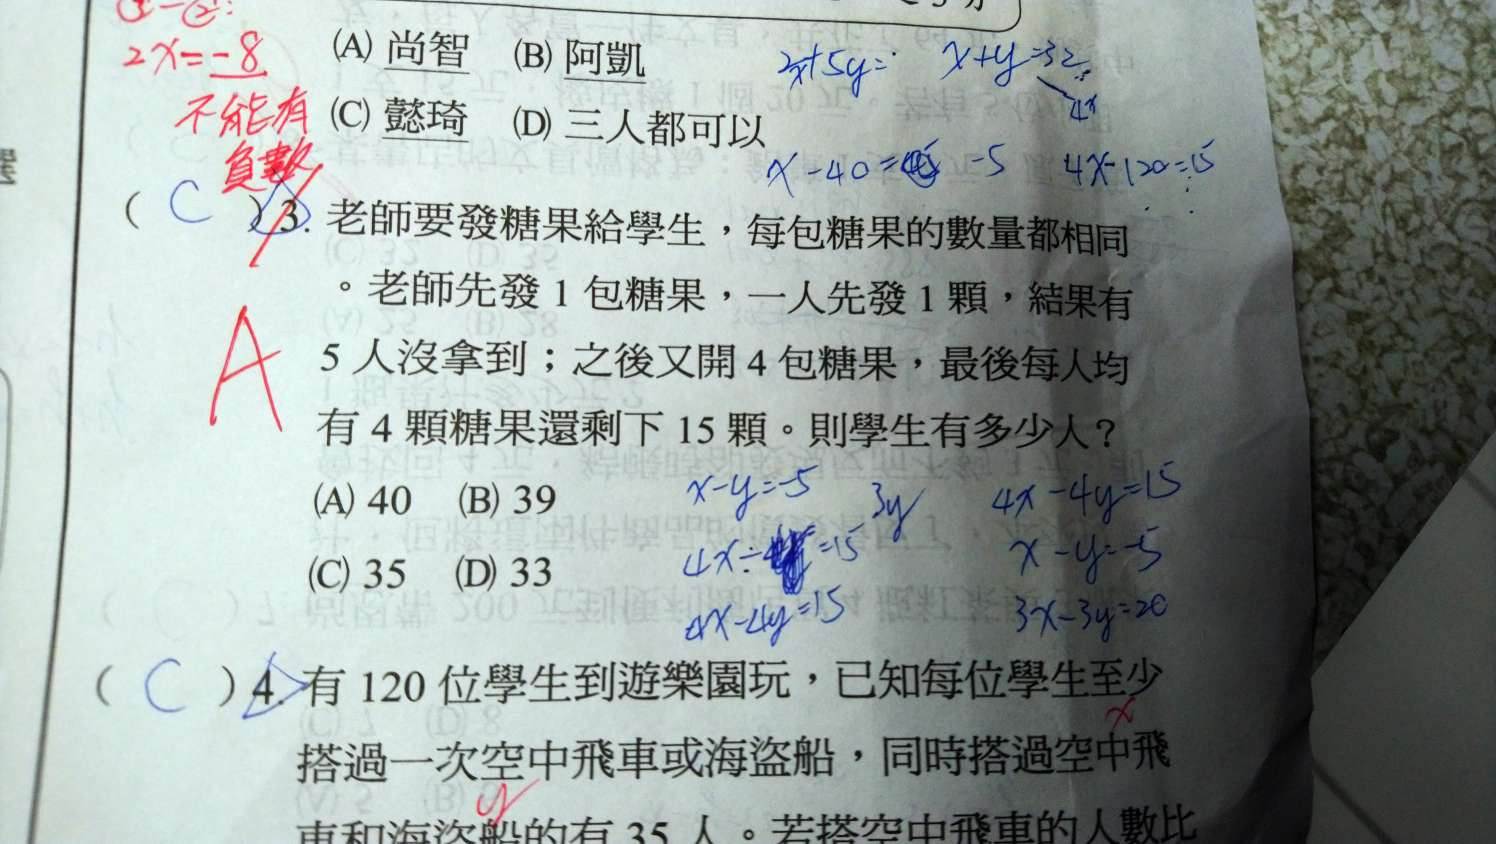 ①-②:
2x=-8
不能有
負數
(A) 尚智 (B) 阿凱
(C) 懿琦 (D) 三人都可以
2x+5y= x+y=32
4x
x-40= -5 4x-120=15
( C ) 3. 老師要發糖果給學生，每包糖果的數量都相同
。老師先發 1 包糖果，一人先發 1 顆，結果有
5 人沒拿到；之後又開 4 包糖果，最後每人均
有 4 顆糖果還剩下 15 顆。則學生有多少人？
A
(A) 40 (B) 39
(C) 35 (D) 33
x-y=-5 3y 4x-4y=15
4x- =15 x-y=-5
4x-4y=15 3x-3y=20
( C ) 4. 有 120 位學生到遊樂園玩，已知每位學生至少
x
搭過一次空中飛車或海盜船，同時搭過空中飛
y
車和海盜船的有 35 人。若搭空中飛車的人數比